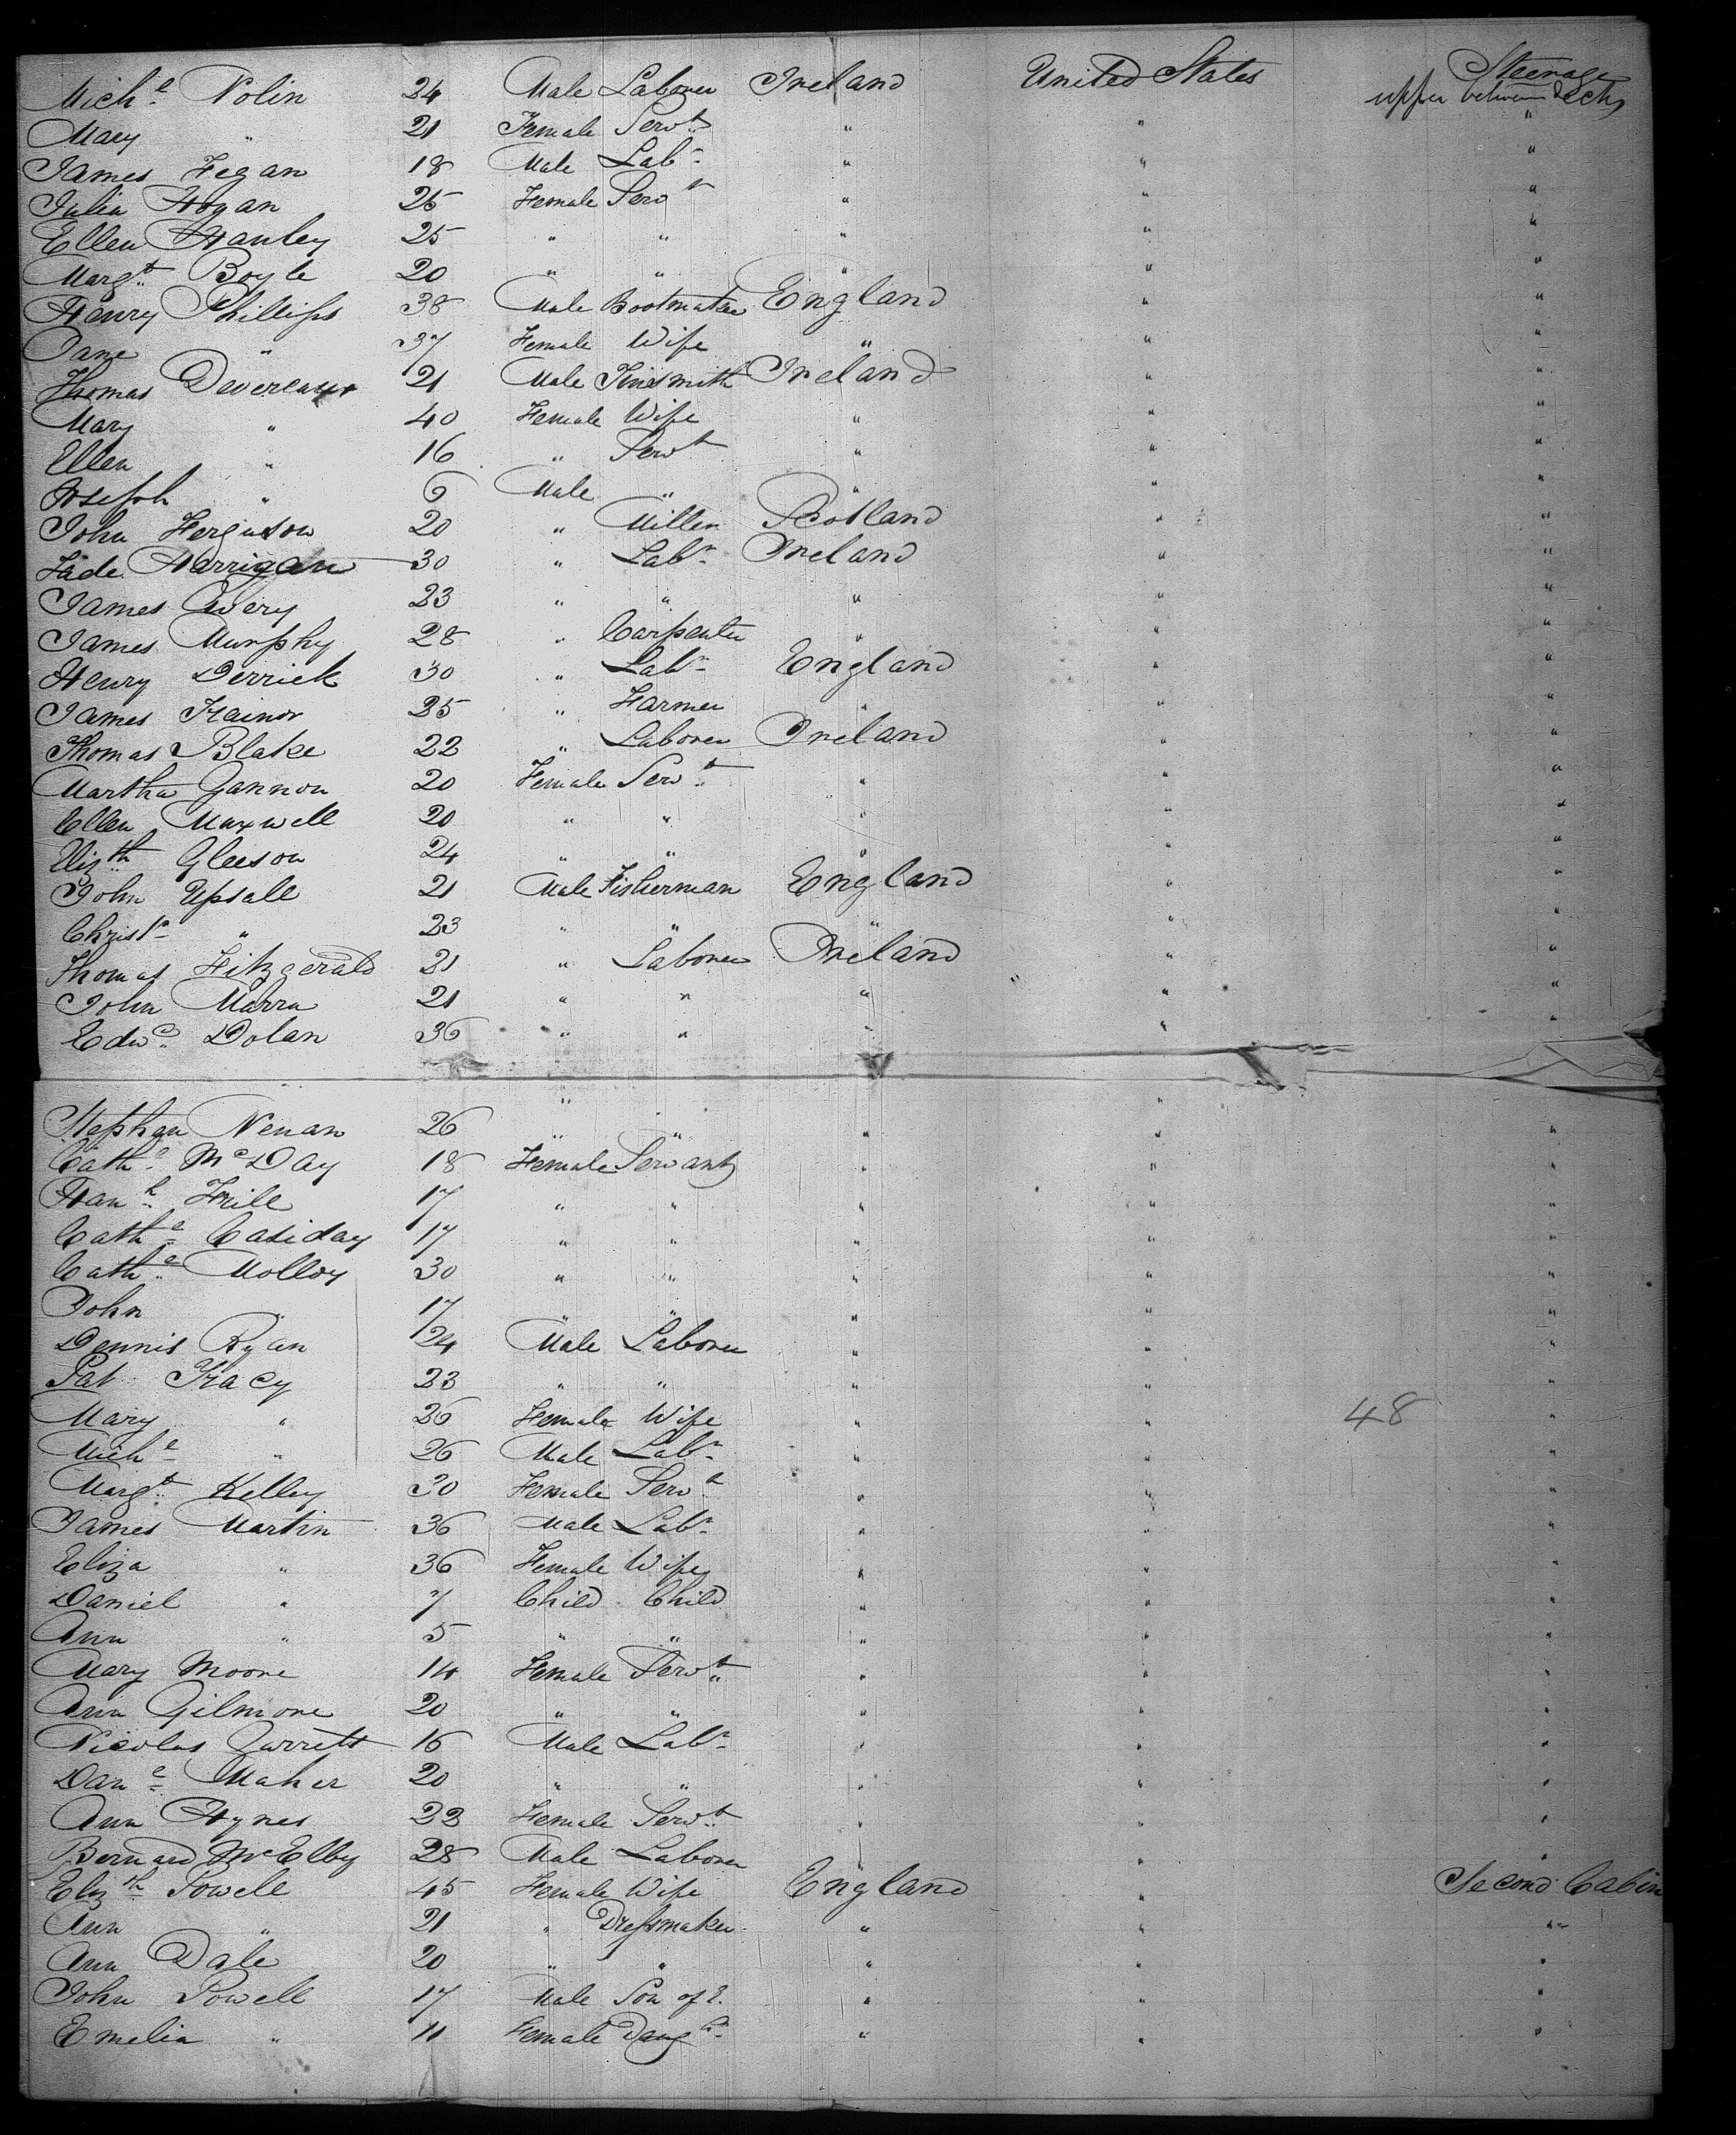 Mich.l Nolin 24 Male Laborer Ireland United States Steerage upper between decks
Mary " 21 Female Servt " " "
James Fegan 18 Male Labr " " "
Julia Hogan 25 Female Servt " " "
Ellen Hanley 25 " " " " "
Margt Boyle 20 " " " " "
Henry Phillips 38 Male Bootmaker England " "
Jane " 37 Female Wife " " "
Thomas Devereaux 21 Male Tinsmith Ireland " "
Mary " 40 Female Wife " " "
Ellen " 16 " Servt " " "
Joseph " 6 Male " " " "
John Ferguson 20 " Miller Scotland " "
Harrigan 30 " Labr Ireland " "
James Avery 23 " " " " "
James Murphy 28 " Carpenter " " "
Henry Derrick 30 " Labr England " "
James Trainor 25 " Farmer " " "
Thomas Blake 22 " Laborer Ireland " "
Martha Gannon 20 Female Servt " " "
Ellen Maxwell 20 " " " " "
Elizth Gleeson 24 " " " " "
John Upsall 21 Male Fisherman England " "
Christr " 23 " " " " "
Thomas Fitzgerald 21 " Laborer Ireland " "
John Marra 21 " " " " "
Edwd Dolan 36 " " " " "
Stephen Nenan 26 " " " " "
Cathe McDay 18 Female Servants " " "
Hanh Friel 17 " " " " "
Cathe Casiday 17 " " " " "
Cathe Molloy 30 " " " " "
John " 17 " " " " "
Dennis Ryan 24 Male Laborer " " "
Pat Tracy 23 " " " " "
Mary " 26 Female Wife " " 48 "
Michl " 26 Male Labr " " "
Margt Kelley 30 Female Servt " " "
James Martin 36 Male Labr " " "
Eliza " 36 Female Wife " " "
Daniel " 7 Child Child " " "
Ann " 5 " " " " "
Mary Moore 14 Female Servt " " "
Ann Gilmore 20 " " " " "
Nicolas Garrett 16 Male Labr " " "
Danl Maher 20 " " " " "
Ann Hynes 22 Female Servt " " "
Bernard McElby 28 Male Laborer " " "
Elizth Powell 45 Female Wife England " Second Cabin
Ann " 21 " Dressmaker " " "
Ann Dale 20 " " " " "
John Powell 17 Male Son of E. " " "
Emelia " 11 Female Daugr " " "